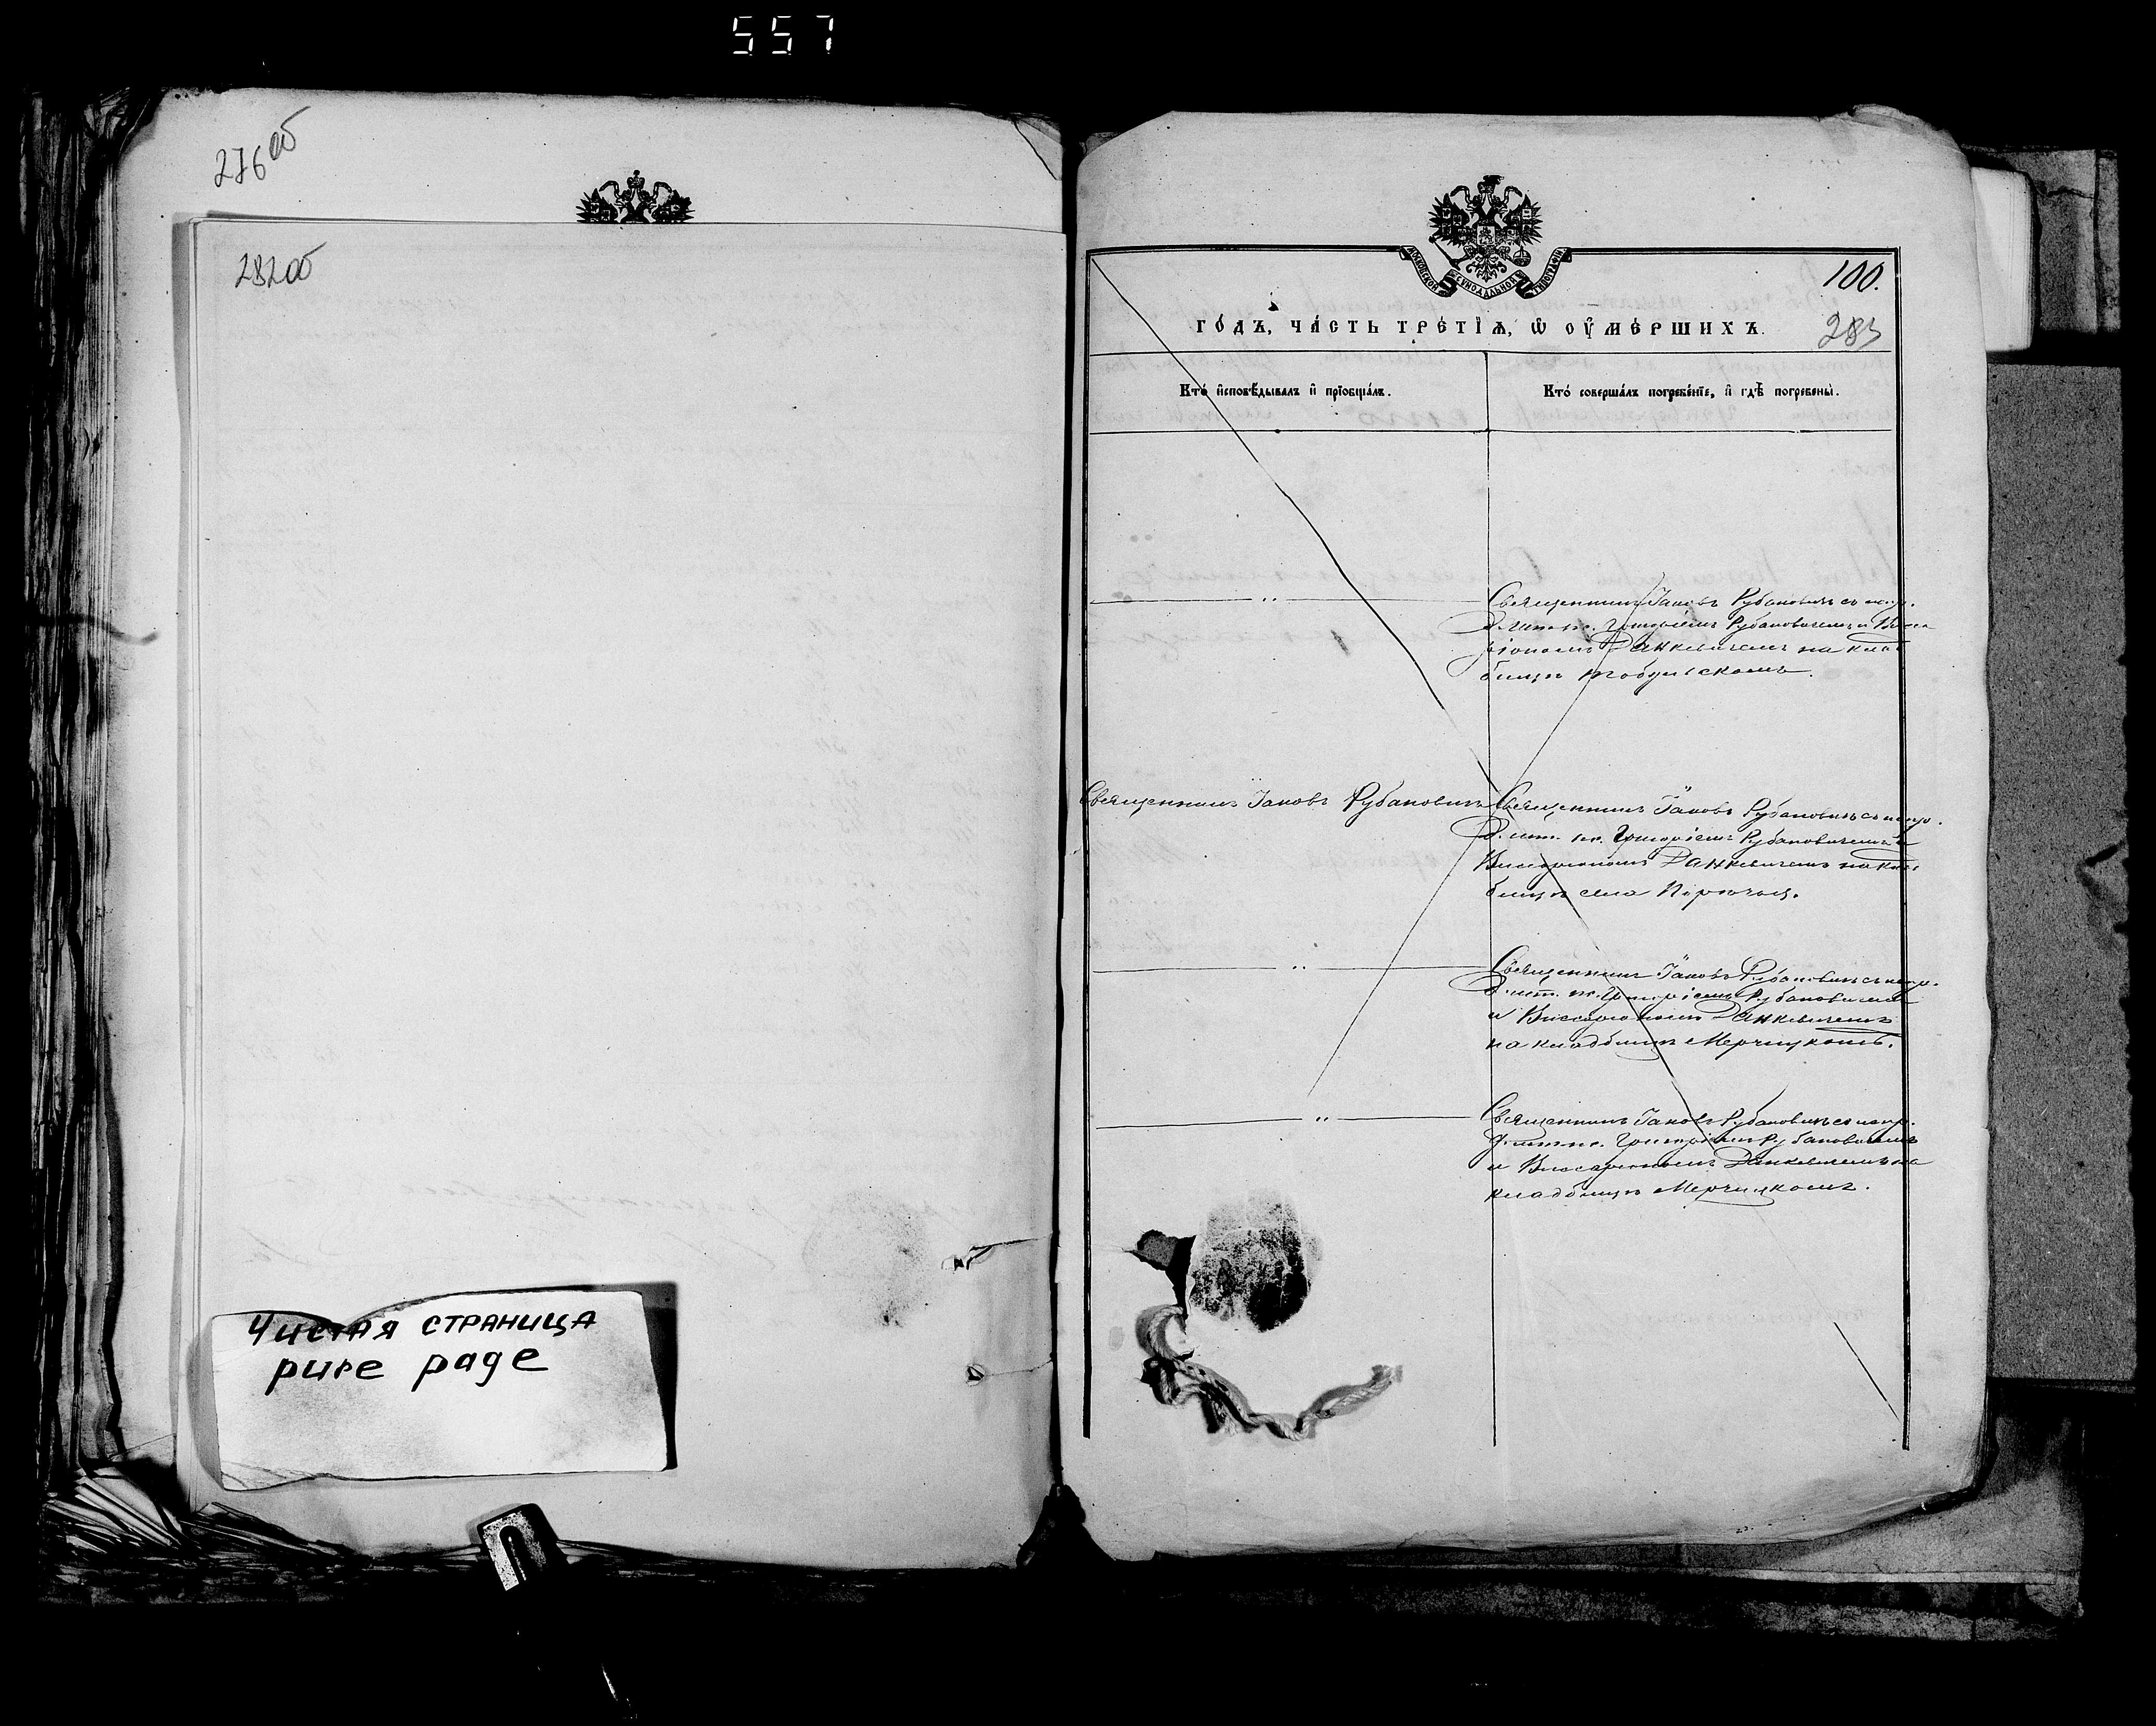 557
276 об
282 об
Чистая страница
pure page
МОСКОВСКОЙ СѴНОДАЛЬНОЙ ТИПОГРАФІИ
100.
283
ГО́ДЪ, ЧА́СТЬ ТРЕ́ТІѦ, Ѡ҆ ОУ҆МЕ́РШИХЪ.
Кто́ и҆сповѣ́дывалъ и҆ прїобща́лъ.
Кто́ соверша́лъ погребе́нїе, и҆ гдѣ̀ погребены̀.
Священникъ Іаковъ Рубановичъ с
Григоріемъ Рубановичемъ и Висса
ріономъ Данкевичемъ на клад
бищѣ
Священникъ Іаковъ Рубановичъ
Священникъ Іаковъ Рубановичъ с
Григоріемъ Рубановичемъ и
Виссаріономъ Данкевичемъ на клад
бищѣ села
Священникъ Іаковъ Рубановичъ с
Григоріемъ Рубановичемъ
и Виссаріономъ Данкевичемъ
на кладбищѣ Мерчицкомъ.
Священникъ Іаковъ Рубановичъ с
Григоріемъ Рубановичемъ
и Виссаріономъ Данкевичемъ на
кладбищѣ Мерчицкомъ.